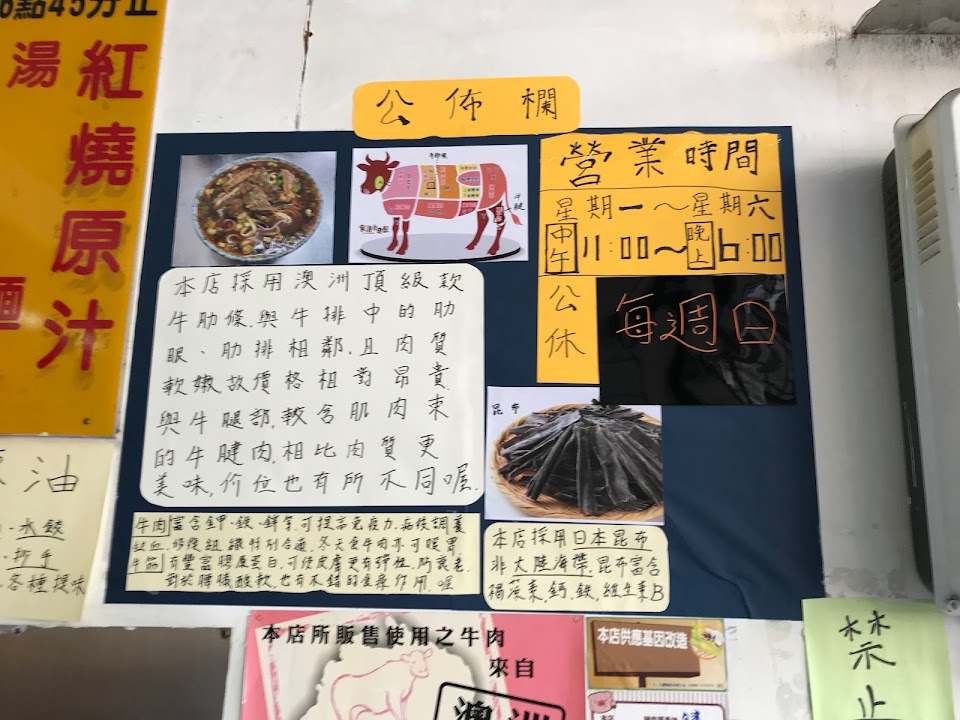 6點45分止
湯
紅燒原汁
麵
公佈欄
昆布
營業時間
星期一～星期六
中午11:00～晚上6:00
公休
每週日
本店採用澳洲頂級款
牛肋條.與牛排中的肋
眼、肋排相鄰.且肉質
軟嫩故價格相對昂貴.
與牛腿部.較含肌肉束
的牛腱肉.相比肉質更
美味,价位也有所不同喔.
牛肉 富含鉀、鐵、鋅等.可提高免疫力.病後調養
缺血.修復組織特別合適.冬天食牛肉亦可暖胃.
牛筋 有豐富膠原蛋白,可使皮膚更有彈性.防衰老.
對於腰膝酸軟,也有不錯的食療作用.喔
本店採用日本昆布
非大陸海帶,昆布富含
褐藻素,鈣,鐵,維生素B
油
水餃
拆手
各種提味
本店所販售使用之牛肉
來自
澳洲
本店供應基因改造
本店
禁止